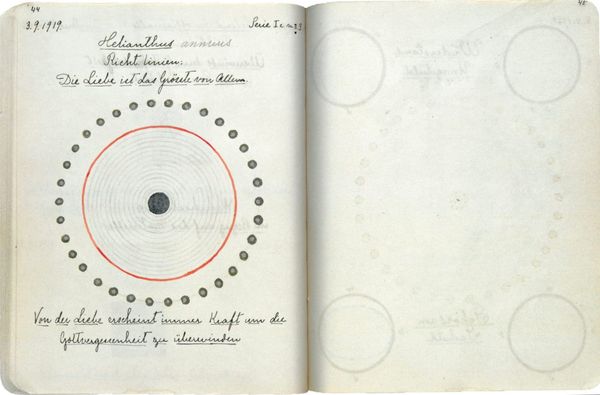 44
3.9.1919. Serie I
Helianthus annuus
Richt linien:
Die Liebe ist das Grösste von Allem.
Von der Liebe erscheint immer Kraft um die
Gottvergessenheit zu überwinden